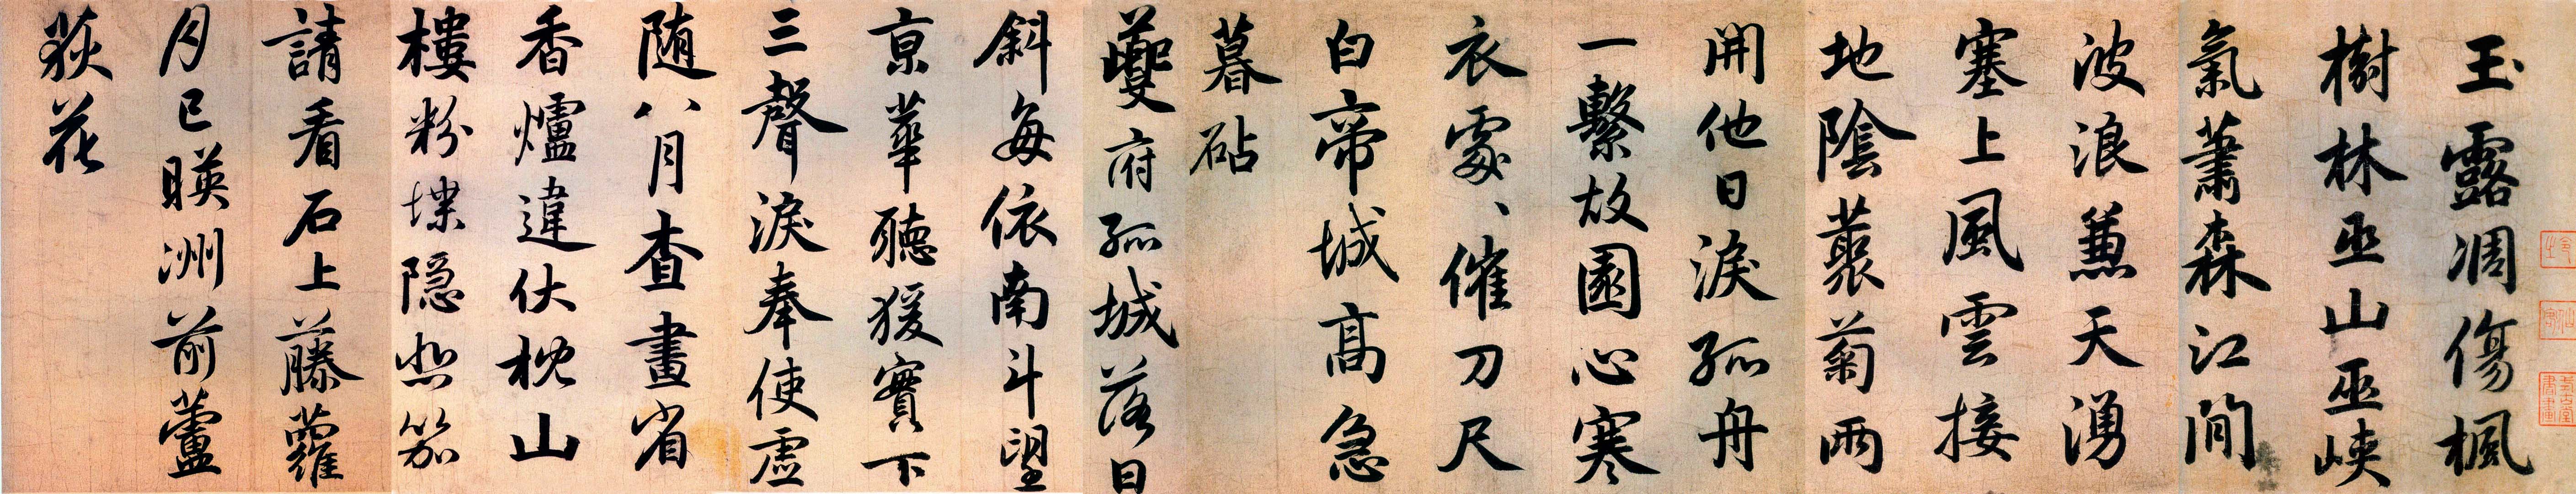 玉露凋傷楓
樹林巫山巫峡
氣蕭森江間
波浪蒹天湧
塞上風雲接
地陰叢菊兩
開他日淚孤舟
一繫故園心寒
衣處、催刀尺
白帝城高急
暮砧
夔府孤城落日
斜每依南斗望
京華聽猨實下
三聲淚奉使虚
随八月查畫省
香爐違伏枕山
樓粉堞隐悲笳
請看石上藤蘿
月已暎洲前蘆
荻花